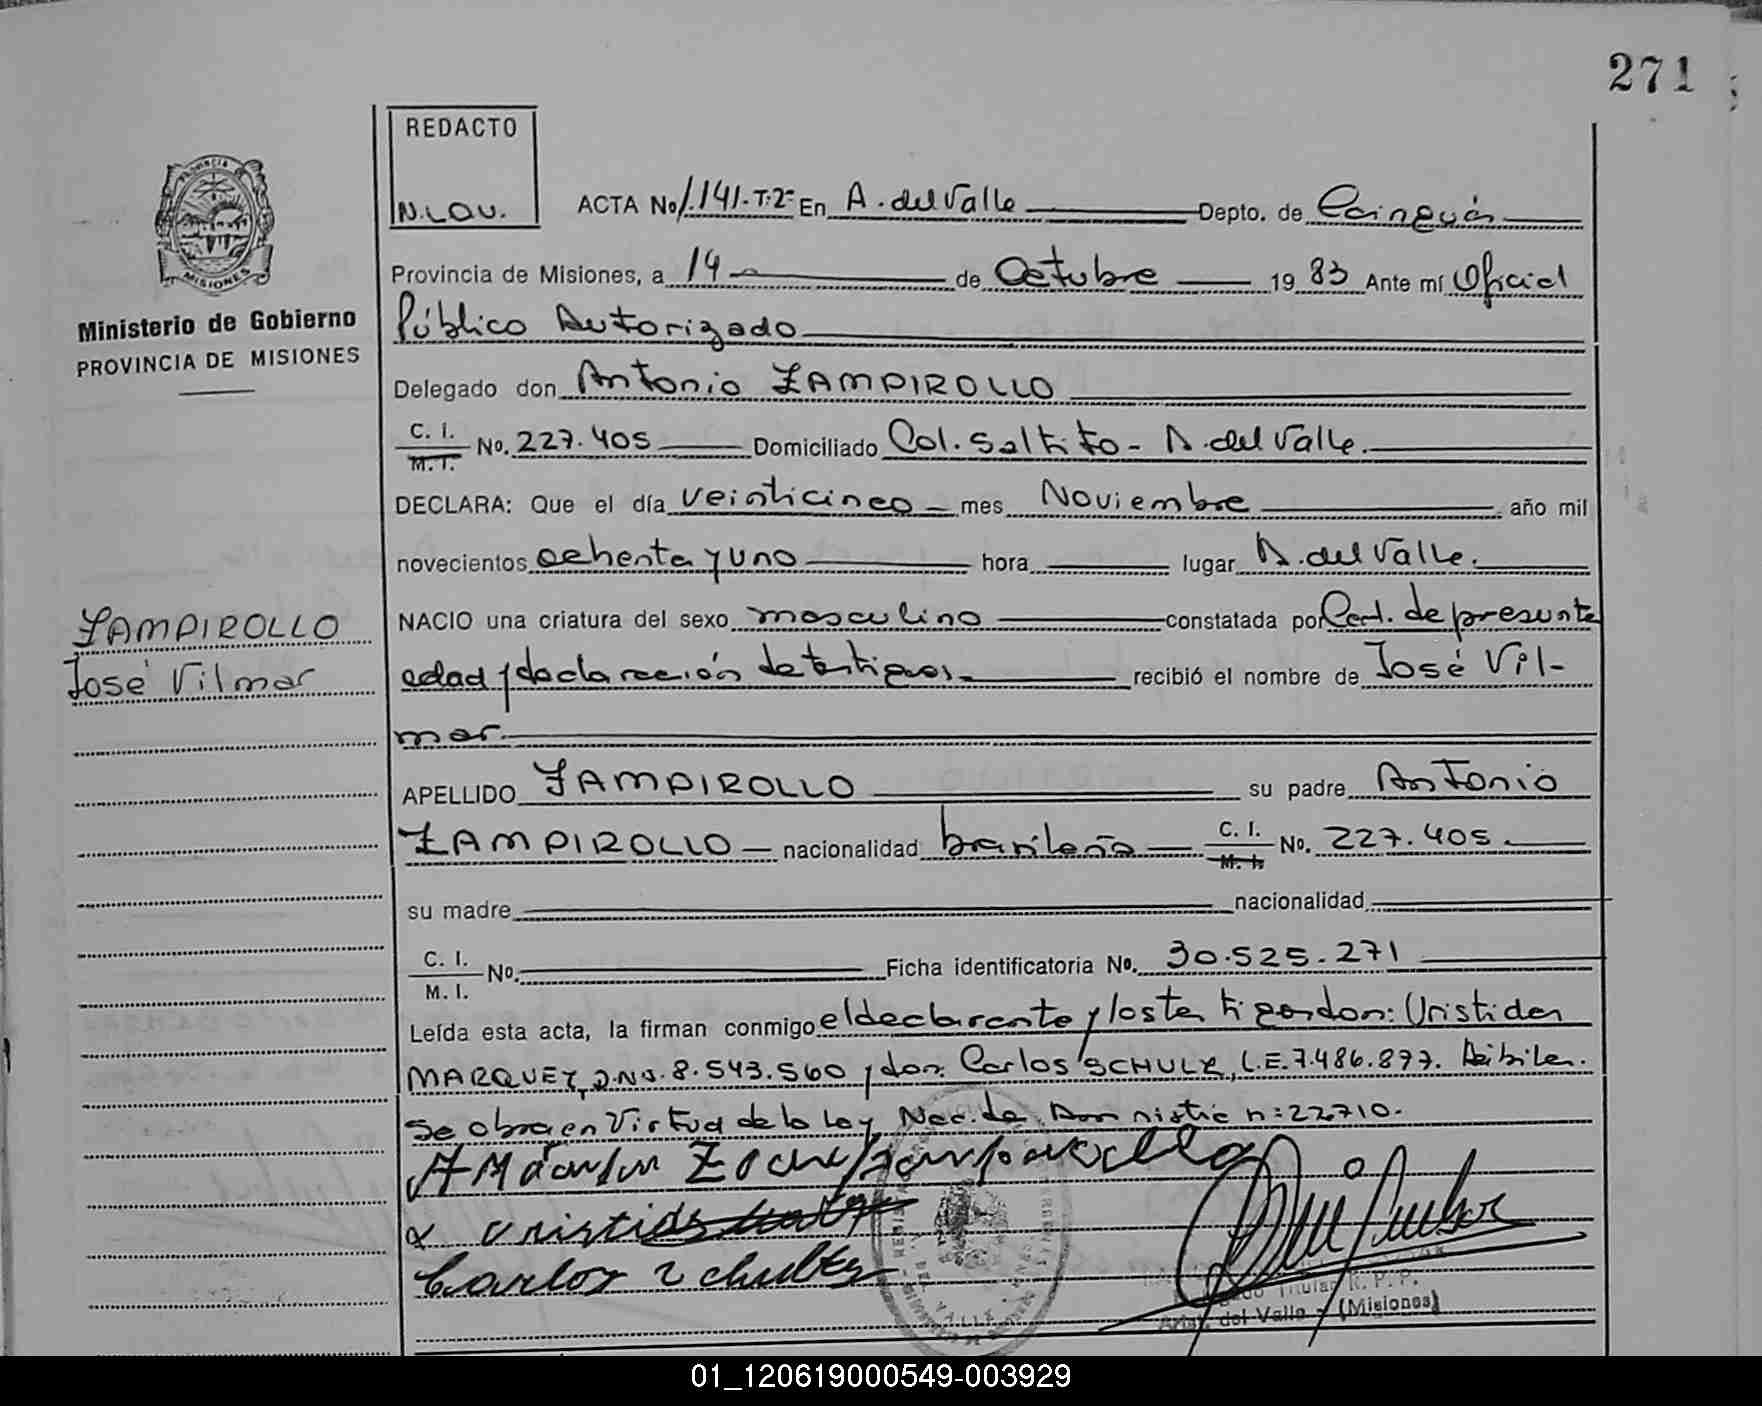 271
REDACTO
N.LOU.
PROVINCIA
MISIONES
Ministerio de Gobierno
PROVINCIA DE MISIONES
ACTA No 1.141-T.2º En A. del Valle Depto. de Cainguás
Provincia de Misiones, a 14 de Octubre 1983 Ante mí Oficial
Público Autorizado
Delegado don Antonio ZAMPIROLLO
C. I. M. I. No. 227.405 Domiciliado Col. Saltito - A. del Valle.
DECLARA: Que el día veinticinco mes Noviembre año mil
novecientos ochenta y uno hora lugar A. del Valle.
ZAMPIROLLO
José Vilmar
NACIO una criatura del sexo masculino constatada por Cert. de presunta
edad y declaración de testigos. recibió el nombre de José Vil-
mar.
APELLIDO ZAMPIROLLO su padre Antonio
ZAMPIROLLO nacionalidad brasileña C. I. M. I. No. 227.405.
su madre nacionalidad
C. I. M. I. No. Ficha identificatoria No. 30.525.271
Leída esta acta, la firman conmigo el declarante y los testigos don: Uristides
MARQUEZ, D.N.I. 8.543.560 y don: Carlos SCHULZ, L.E. 7.486.897.
Se obra en Virtud de la Ley Nac. de Amnistía nº 22710.
Uristides
Carlos Schultz
Titular R. P. P.
Arist. del Valle - (Misiones)
01_120619000549-003929